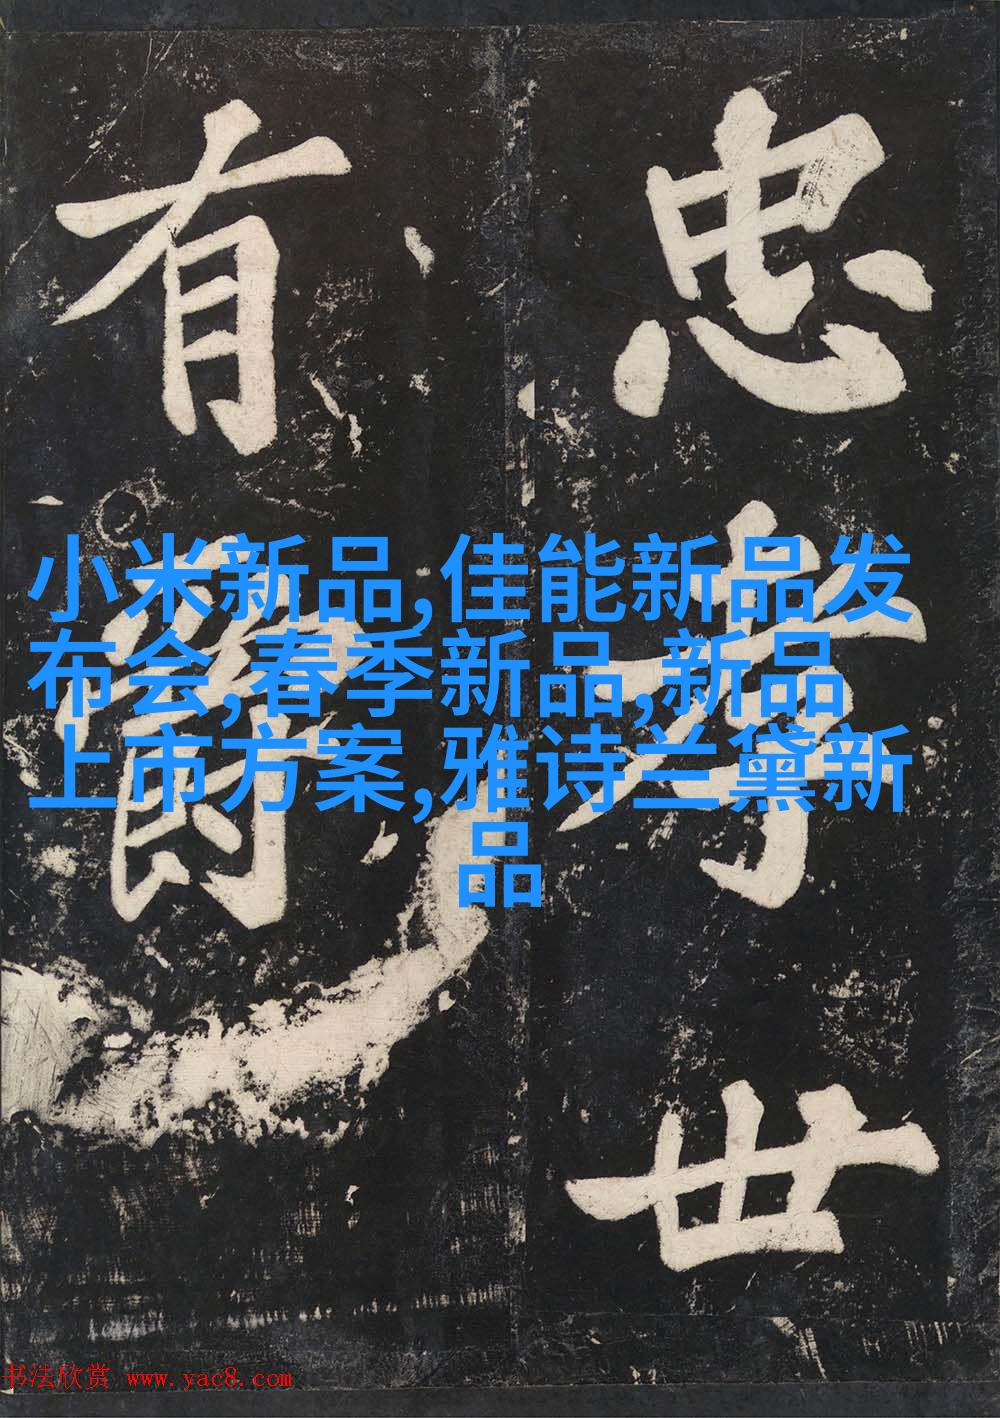 忠孝世
有
小米新品,佳能新品发
布会,春季新品,新品
上市方案,雅诗兰黛新
品
书法欣赏 www.yac8.com